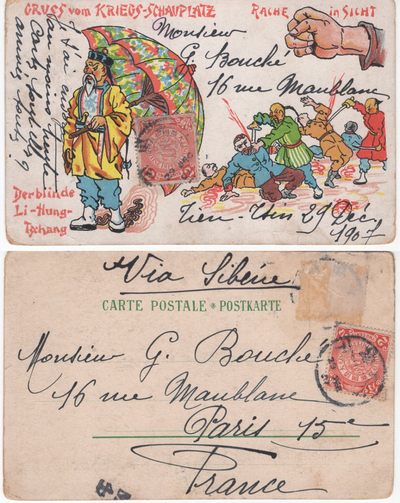 GRUSS vom KRIEGS-SCHAUPLATZ
RACHE in SICHT
Monsieur
G. Bouché
16 rue Maublanc
Der blinde
Li-Hung-
Tschang
Tien-Tsin 29 Déc.
1907
Via Sibérie
CARTE POSTALE * POSTKARTE
Monsieur G. Bouché
16 rue Maublanc
Paris 15e
France